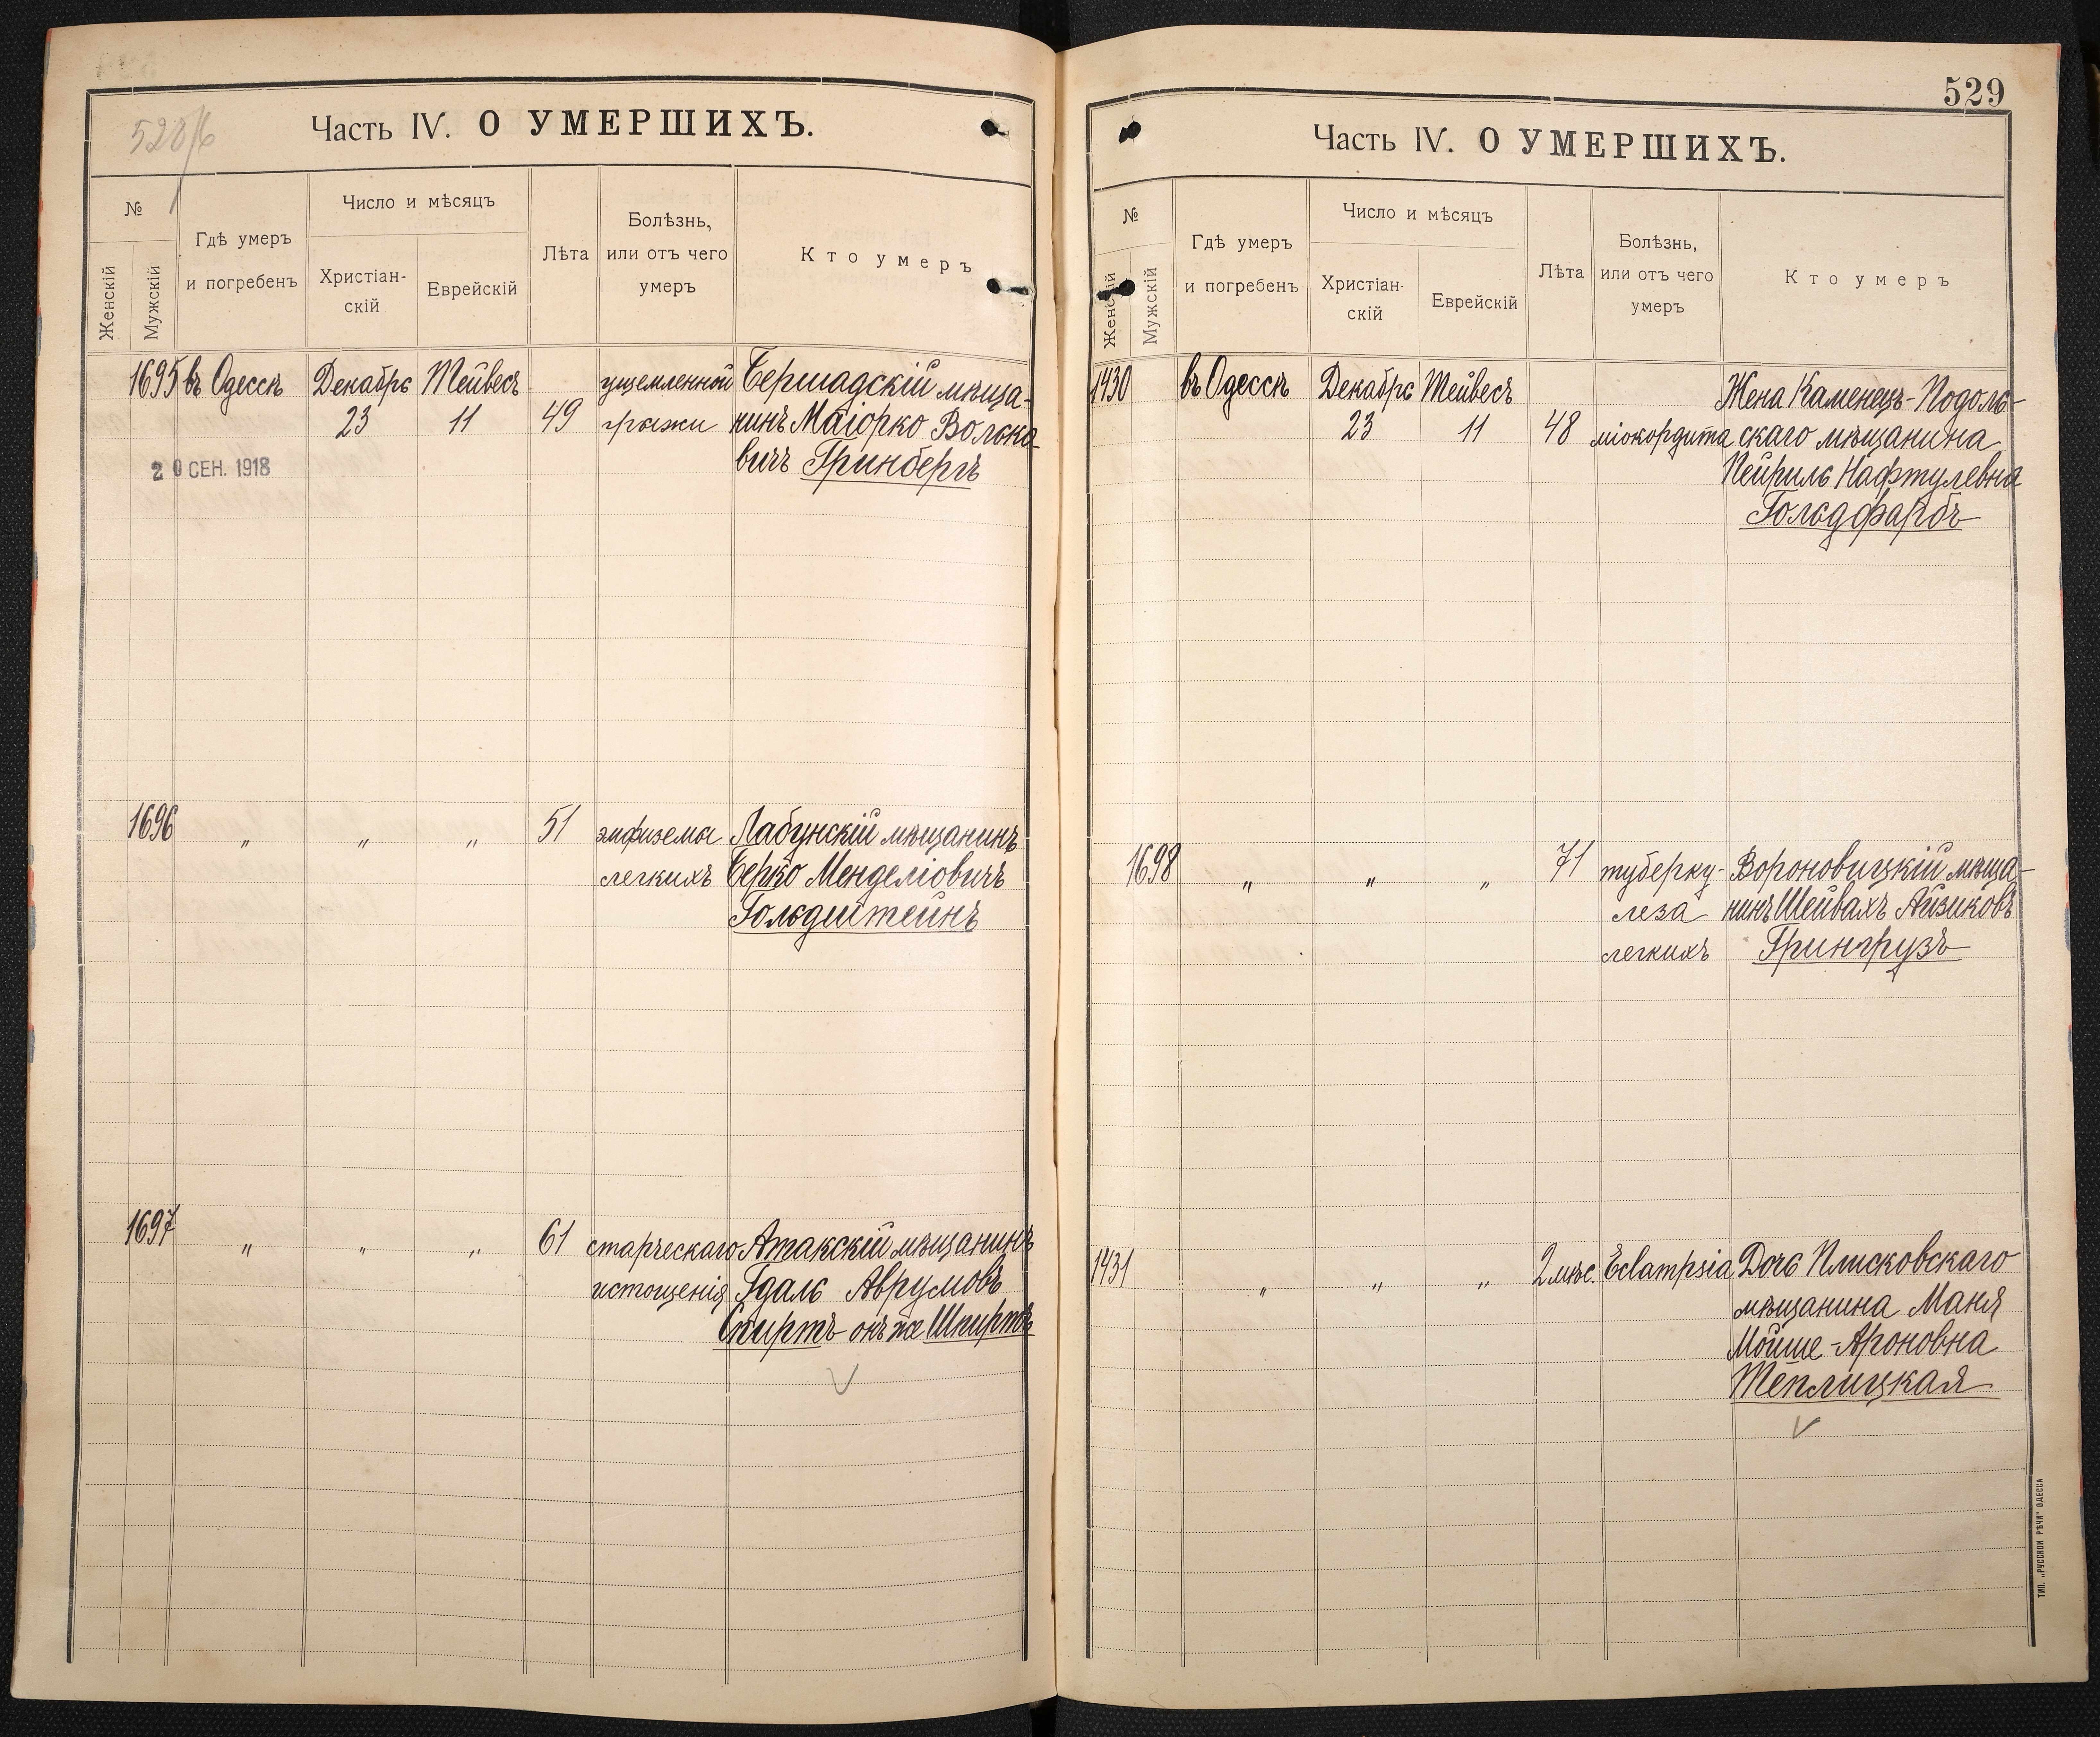 528/б
Часть IV. О УМЕРШИХЪ.
№
Женскій
Мужскій
Гдѣ умеръ
и погребенъ
Число и мѣсяцъ
Христіан-
скій
Еврейскій
Лѣта
Болѣзнь,
или отъ чего
умеръ
Кто умеръ
1695 въ Одессѣ Декабрь Тейвесъ ущемленной Бершадскій мѣща-
23 11 49 грыжи нинъ Маіорко Волько-
вичъ Гринбергъ
20 СЕН. 1918
1696 „ „ „ 51 эмфиземы Лабунскій мѣщанинъ
легкихъ Берко Менделіовичъ
Гольдштейнъ
1697 „ „ „ 61 старческаго Атакскій мѣщанинъ
истощенія Гдаль Аврумовъ
Спиртъ онъ же Шпиртъ
529
Часть IV. О УМЕРШИХЪ.
№
Женскій
Мужскій
Гдѣ умеръ
и погребенъ
Число и мѣсяцъ
Христіан-
скій
Еврейскій
Лѣта
Болѣзнь,
или отъ чего
умеръ
Кто умеръ
1430 въ Одессѣ Декабрь Тейвесъ Жена Каменецъ-Подоль-
23 11 48 міокордита скаго мѣщанина
Пейриль Нафтулевна
Гольдфарбъ
1698 „ „ „ 71 туберку- Вороновицкій мѣща-
леза нинъ Шейвахъ Айзиковъ
легкихъ Грингрузъ
1431 „ „ „ 2 мѣс. Eclampsia Дочь Плисковскаго
мѣщанина Маня
Мойше-Ароновна
Теплицкая
ТИП. „РУССКОЙ РѢЧИ" ОДЕССА